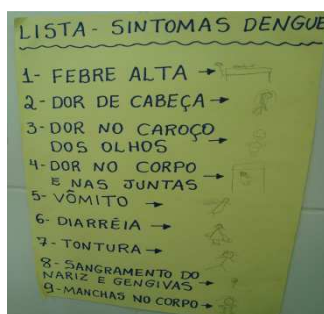 LISTA - SINTOMAS DENGUE
1- FEBRE ALTA →
2- DOR DE CABEÇA →
3- DOR NO CAROÇO
DOS OLHOS →
4- DOR NO CORPO
E NAS JUNTAS →
5- VÔMITO →
6- DIARRÉIA →
7- TONTURA →
8- SANGRAMENTO DO
NARIZ E GENGIVAS →
9- MANCHAS NO CORPO →